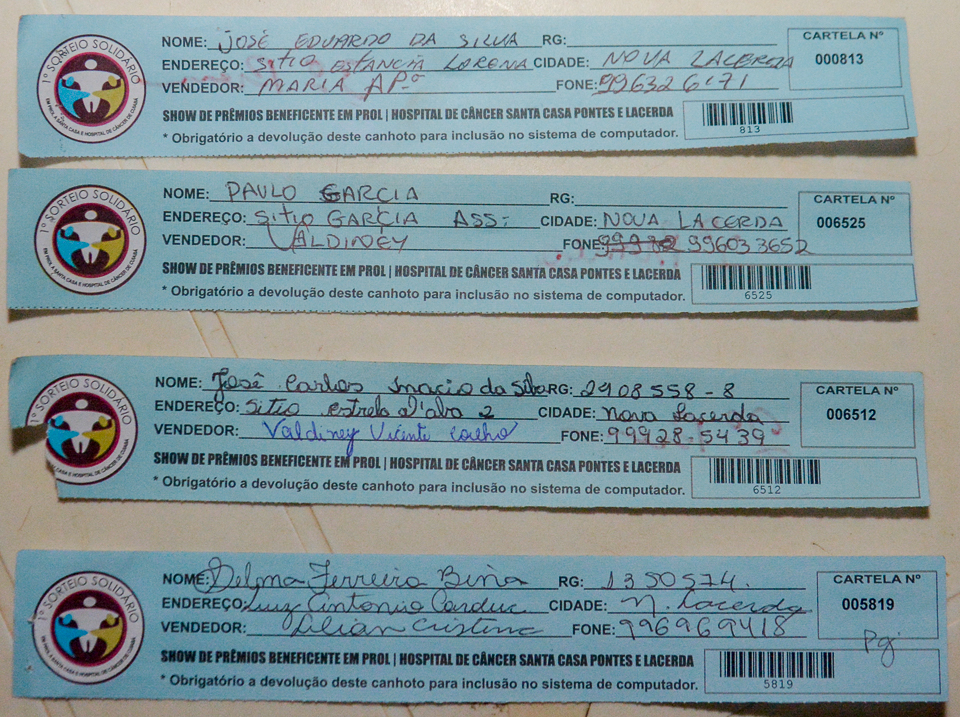 1º SORTEIO SOLIDÁRIO
EM PROL A SANTA CASA E HOSPITAL DE CÂNCER DE CUIABÁ
NOME: JOSÉ EDUARDO DA SILVA RG:
CARTELA Nº
000813
ENDEREÇO: SITIO ESTANCIA LORENA CIDADE: NOVA LACERDA
VENDEDOR: MARIA APª FONE: 99632 6171
SHOW DE PRÊMIOS BENEFICENTE EM PROL | HOSPITAL DE CÂNCER SANTA CASA PONTES E LACERDA
* Obrigatório a devolução deste canhoto para inclusão no sistema de computador.
813
1º SORTEIO SOLIDÁRIO
EM PROL A SANTA CASA E HOSPITAL DE CÂNCER DE CUIABÁ
NOME: PAULO GARCIA RG:
CARTELA Nº
006525
ENDEREÇO: SITIO GARCIA ASS: CIDADE: NOVA LACERDA
VENDEDOR: VALDINEY FONE: 996033652
SHOW DE PRÊMIOS BENEFICENTE EM PROL | HOSPITAL DE CÂNCER SANTA CASA PONTES E LACERDA
* Obrigatório a devolução deste canhoto para inclusão no sistema de computador.
6525
1º SORTEIO SOLIDÁRIO
CASA E HOSPITAL DE CÂNCER DE CUIABÁ
NOME: José Carlos Inacio da Silva RG: 2908558-8
CARTELA Nº
006512
ENDEREÇO: Sitio estrela d'alva 2 CIDADE: Nova Lacerda
VENDEDOR: Valdiney Vicente Coelho FONE: 99928-5439
SHOW DE PRÊMIOS BENEFICENTE EM PROL | HOSPITAL DE CÂNCER SANTA CASA PONTES E LACERDA
* Obrigatório a devolução deste canhoto para inclusão no sistema de computador.
6512
1º SORTEIO SOLIDÁRIO
EM PROL A SANTA CASA E HOSPITAL DE CÂNCER DE CUIABÁ
NOME: Delma Ferreira RG: 1350574.
CARTELA Nº
005819
ENDEREÇO: Luiz Antonio CIDADE: N. Lacerda
VENDEDOR: Lilian Cristina FONE: 996969418
Pg
SHOW DE PRÊMIOS BENEFICENTE EM PROL | HOSPITAL DE CÂNCER SANTA CASA PONTES E LACERDA
* Obrigatório a devolução deste canhoto para inclusão no sistema de computador.
5819